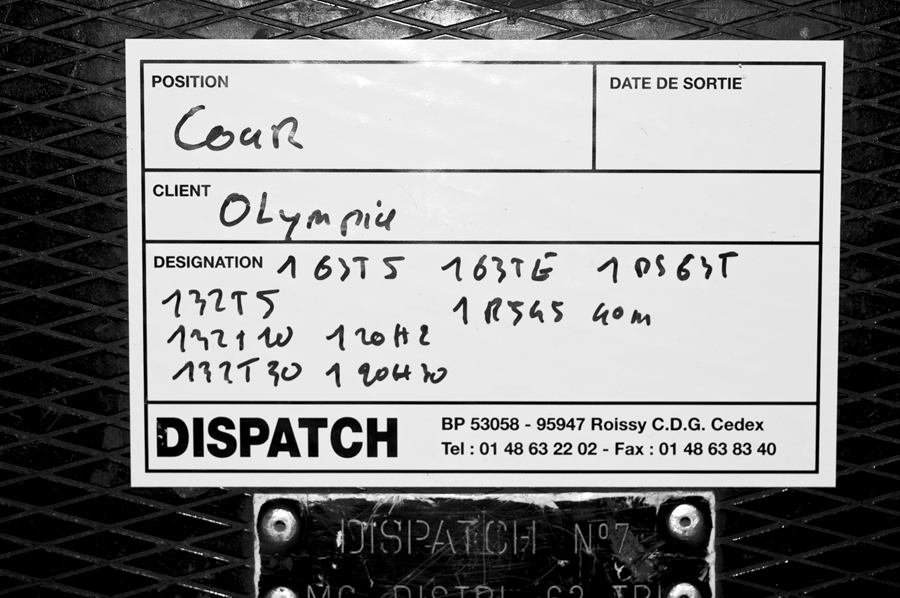 POSITION
DATE DE SORTIE
COUR
CLIENT
OLympia
DESIGNATION 1 63T5 1 63TE 1 RS63T
1 32T5 1 R5G5 40m
1 32T10 1 20H2
1 32T30 1 20H30
DISPATCH
BP 53058 - 95947 Roissy C.D.G. Cedex
Tel : 01 48 63 22 02 - Fax : 01 48 63 83 40
DISPATCH Nº7